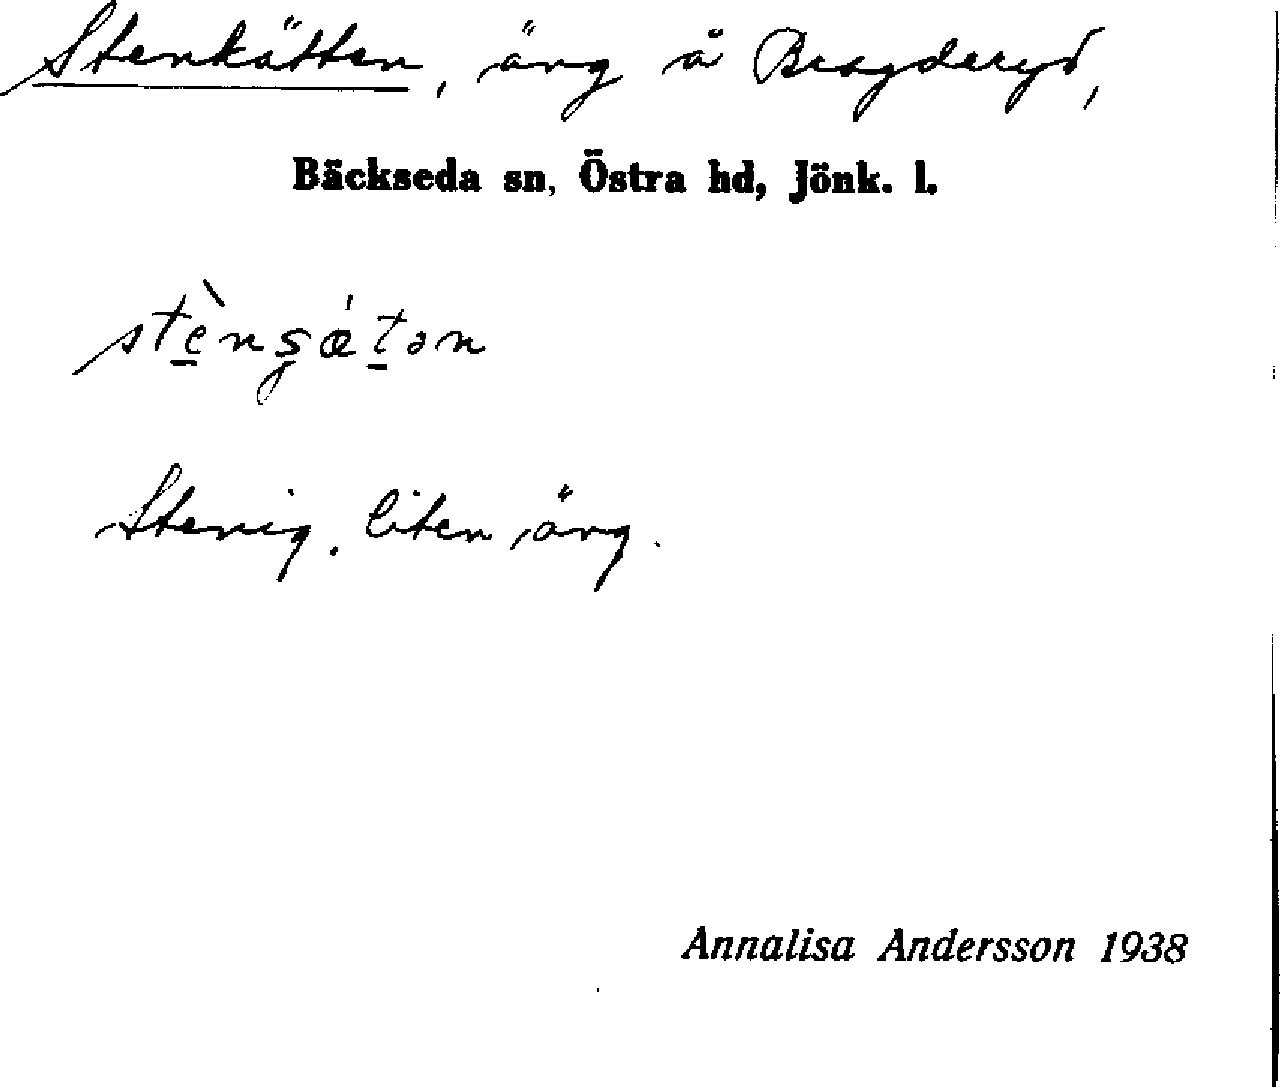 Stenkätten, äng å Bragderyd,
Bäckseda sn, Östra hd, Jönk. l.
Stenig, liten äng.
Annalisa Andersson 1938